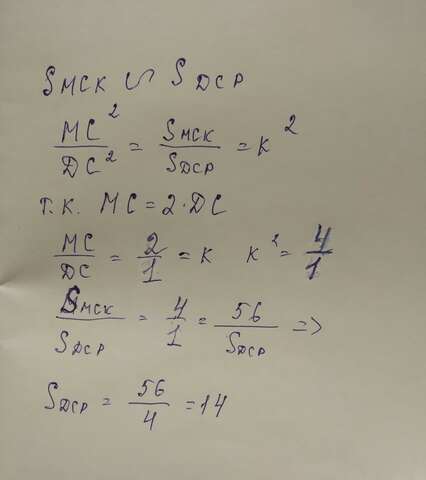 SMCK ∽ SDCP
MC²/DC² = SMCK/SDCP = K²
т.к. MC = 2·DC
MC/DC = 2/1 = K K² = 4/1
SMCK/SDCP = 4/1 = 56/SDCP =>
SDCP = 56/4 = 14